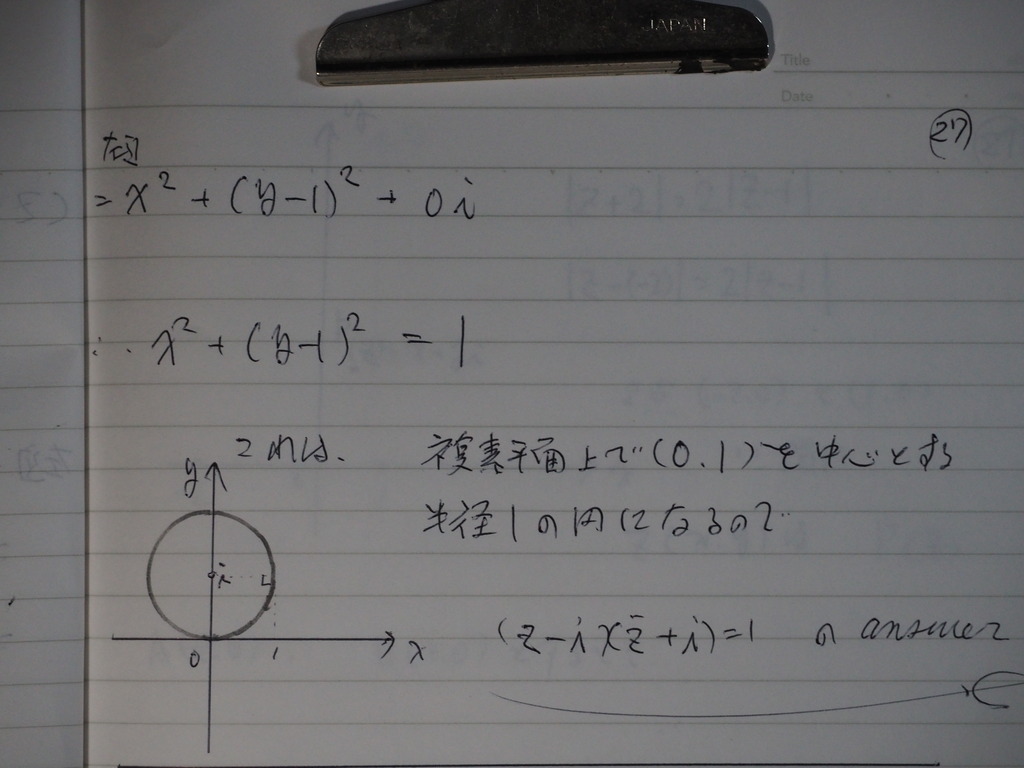 JAPAN
Title
Date
27
左辺
= x² + (y-1)² + 0i
∴ x² + (y-1)² = 1
これは、 複素平面上で(0.1)を中心とする
半径1の円になるので
y
i
0
1
x
(z-i)(z̄+i)=1 の answer